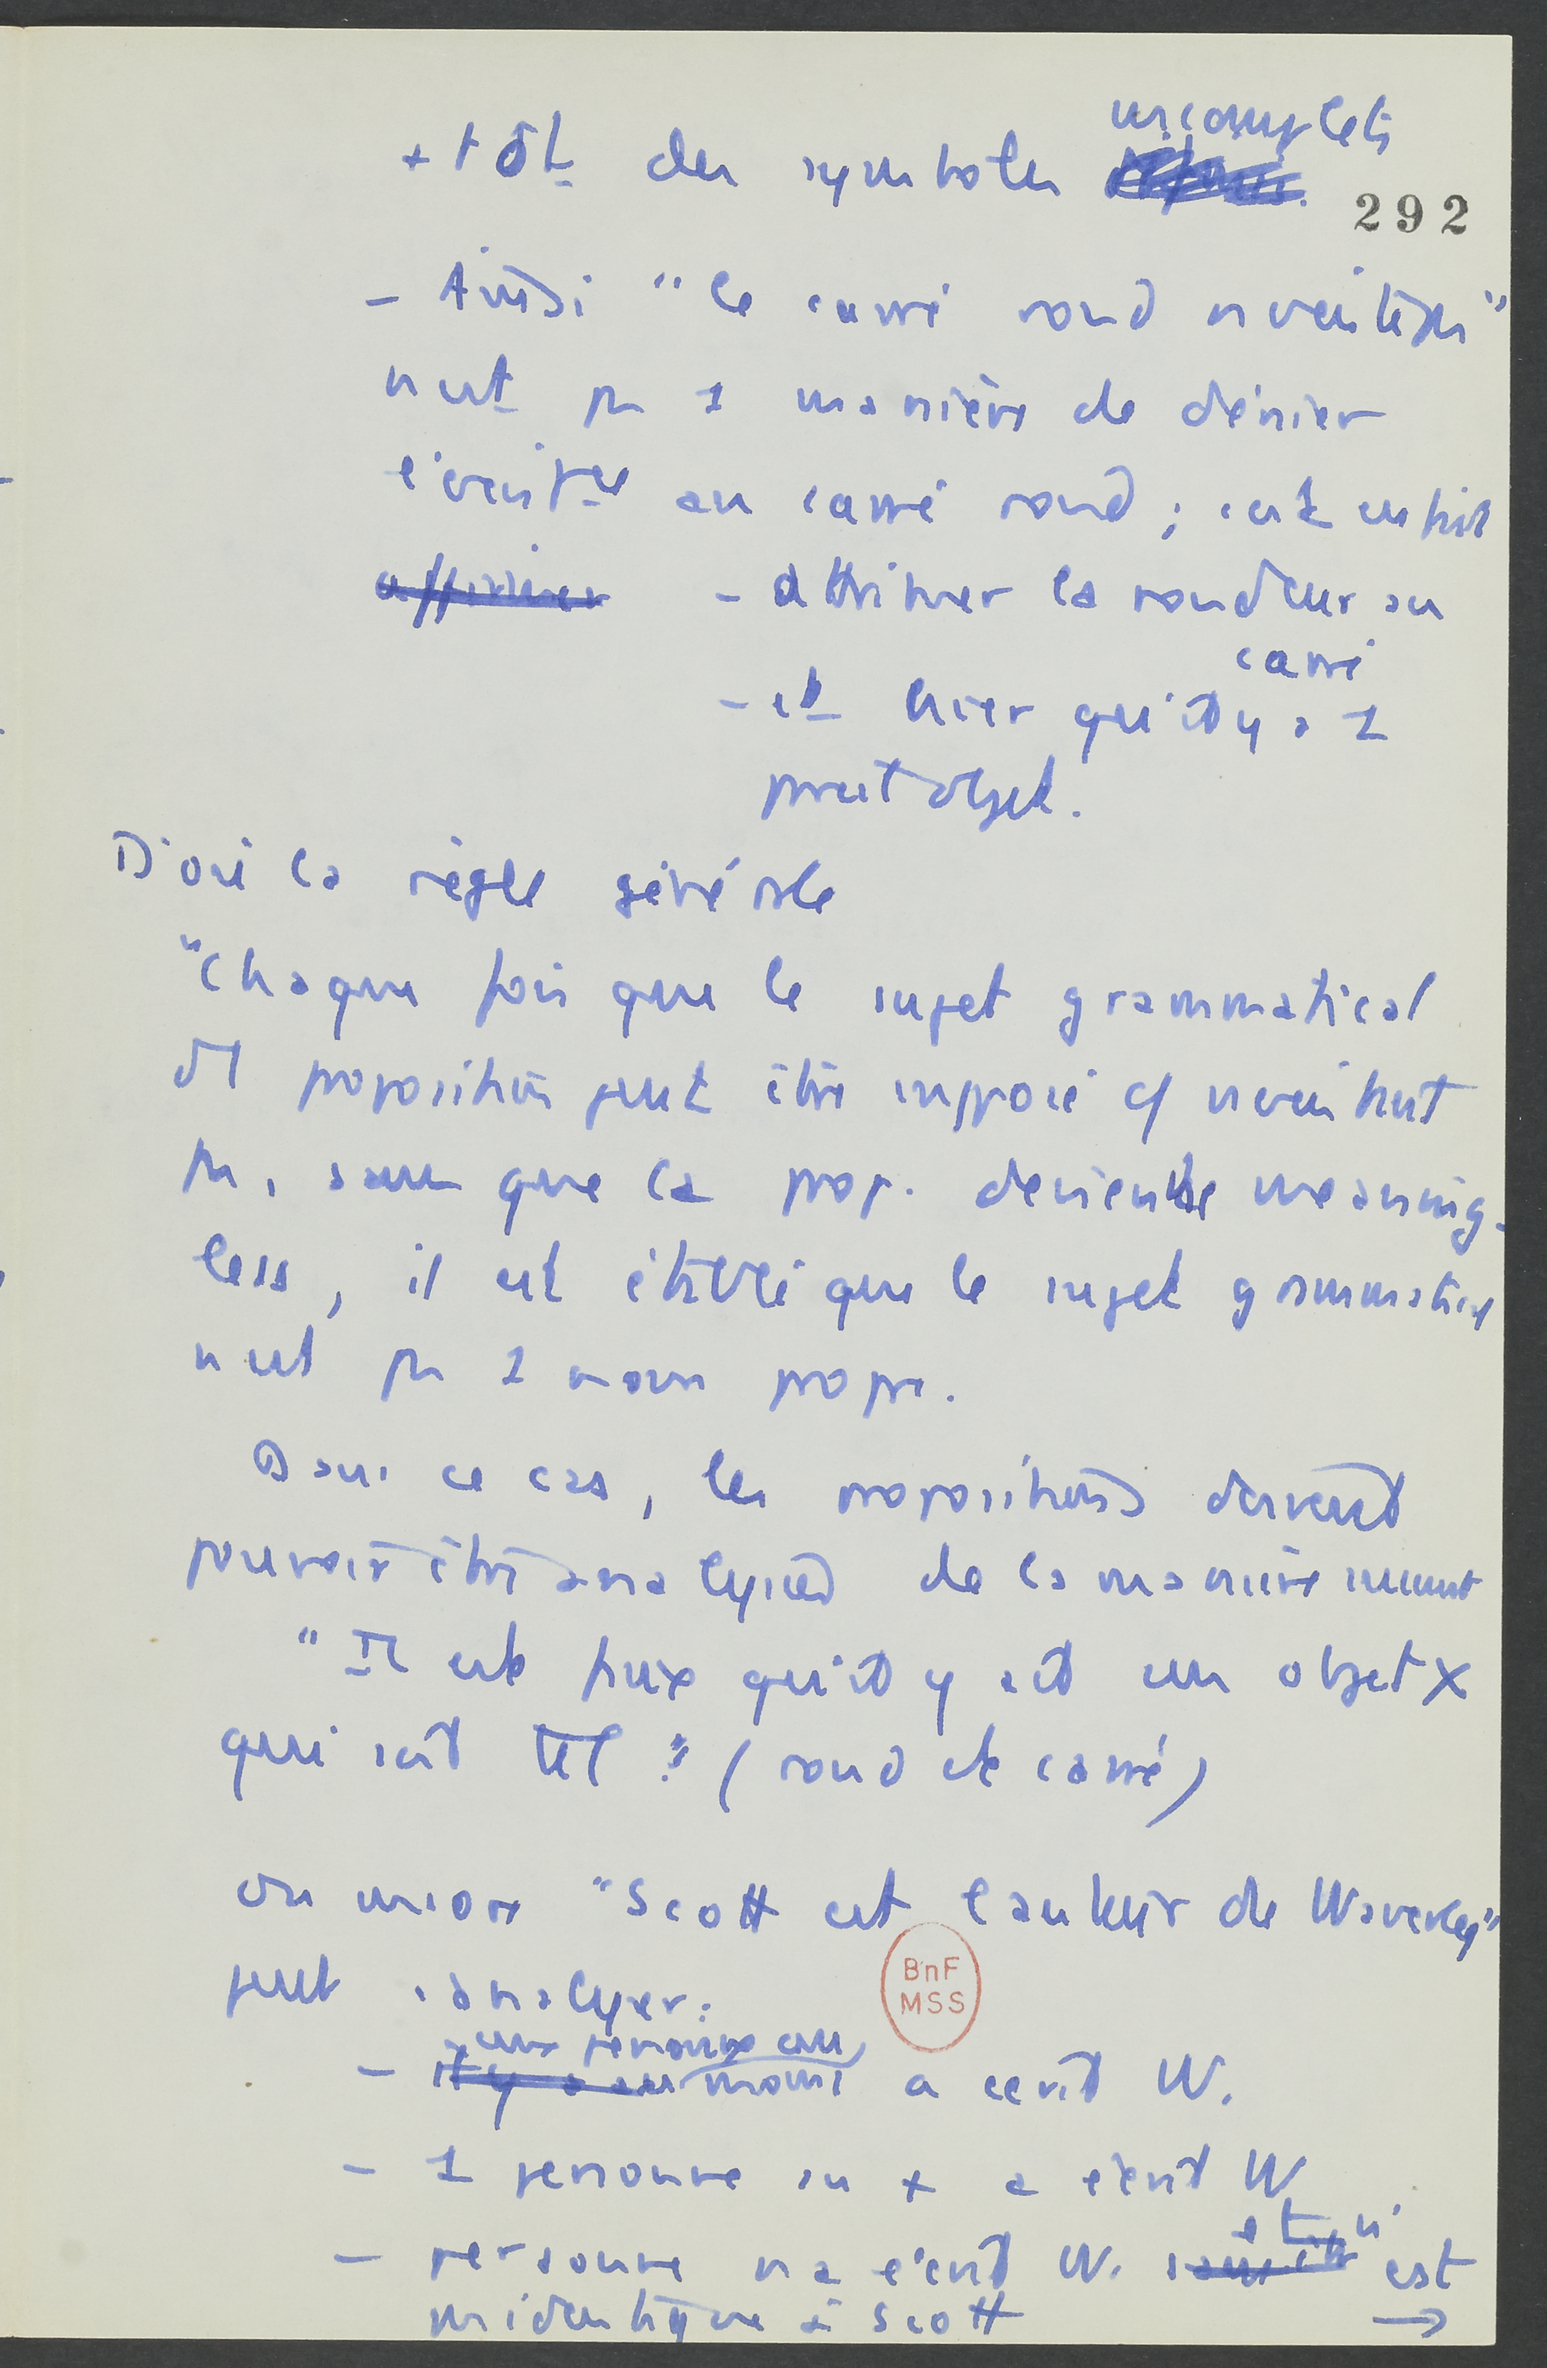 incomplets
+ tôt des symboles
292
- Ainsi "le carré rond n'existe pas"
n'est pas 1 manière de dénier
l'existence au carré rond ; c'est en fait
affirmer - attribuer la rondeur au
carré
- et nier qu'il y a 1
pareil objet.
D'où la règle générale
"Chaque fois que le sujet grammatical
d'1 proposition peut être supposé c/ n'existant
pas, sans que la prop. devienne meaning-
less, il est établi que le sujet grammatical
n'est pas 1 nom propre.
Dans ce cas, les propositions doivent
pouvoir être analysées de la manière suivante
"Il est faux qu'il y ait un objet x
qui soit tel" (rond et carré)
ou encore "Scott est l'auteur de Waverley"
peut s'analyser :
BnF
MSS
une personne au
- il y a au moins a écrit W.
- 1 personne au + a écrit W
et qui
- personne n'a écrit W. est
identique à Scott →